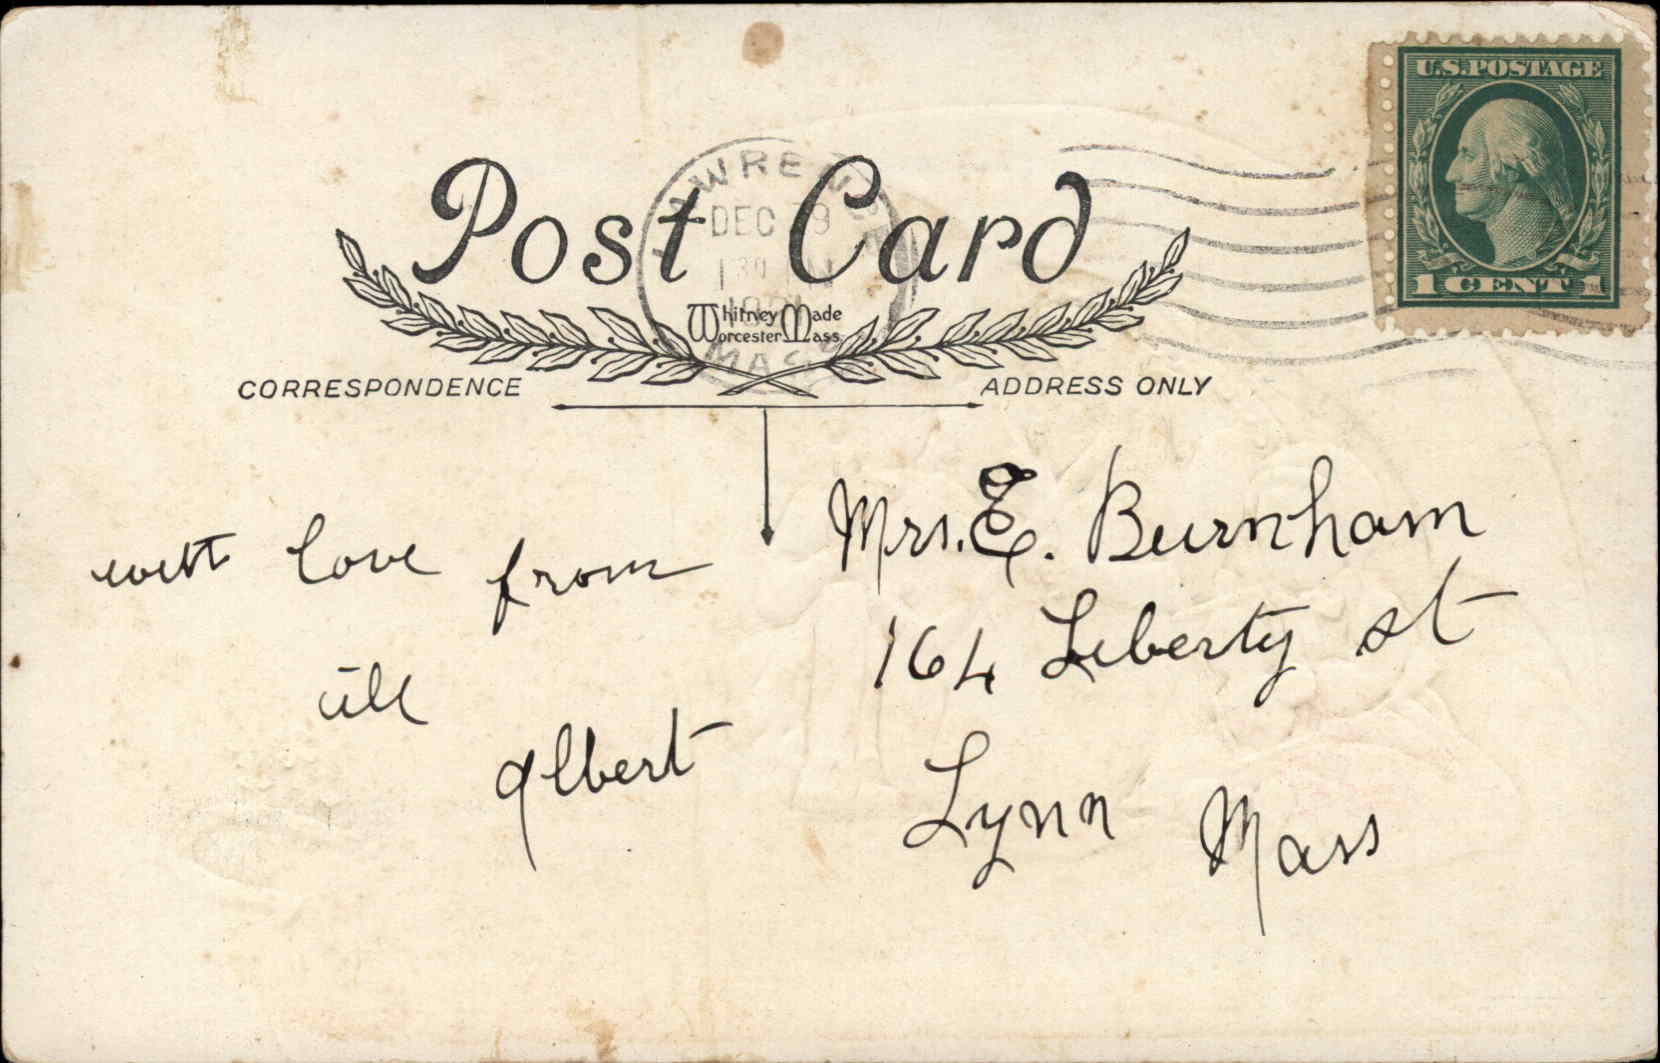 U.S. POSTAGE
1 CENT 1
LAWRENCE
DEC
MASS
Post Card
Whitney Made
Worcester Mass
CORRESPONDENCE
ADDRESS ONLY
with love from
Albert
Mrs. E. Burnham
164 Liberty st
Lynn Mass